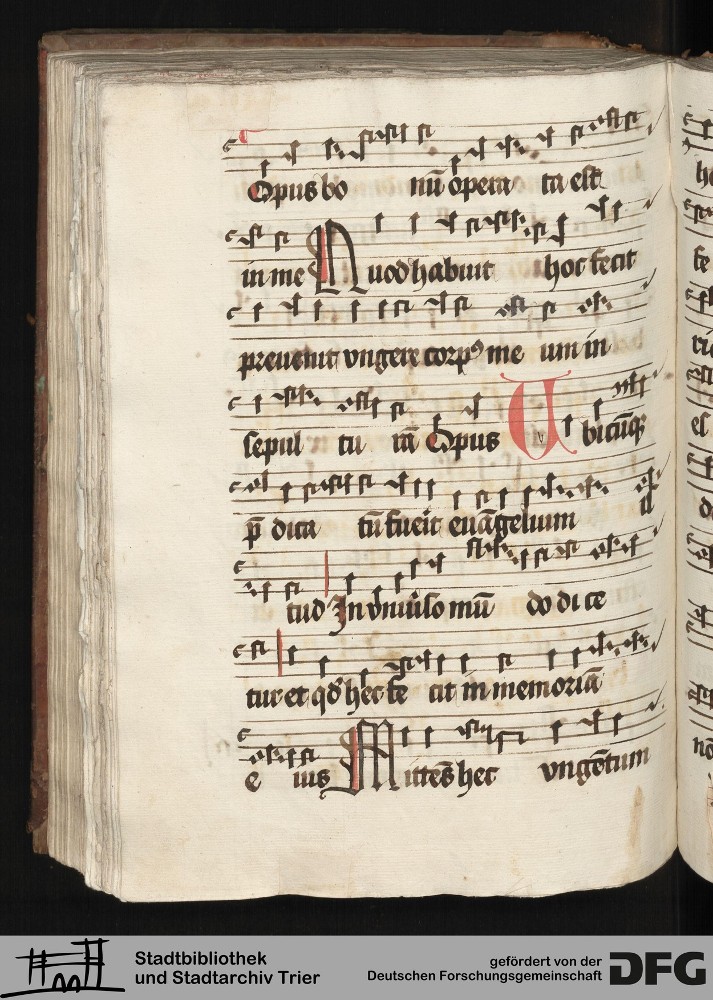 Opus bo nū opera ta est
in me Quod habuit hoc fecit
preuenit vngere corpꝰ me um in
sepul tu rā Opus Ubicūqꝫ
p̄ dica tū fueit euāgelium il
lud In vniu̾so mū do di ce
tur et qd̾ hec fe cit in memoriā
e ius Mittēs hec vngētum
Stadtbibliothek
und Stadtarchiv Trier
gefördert von der
Deutschen Forschungsgemeinschaft DFG